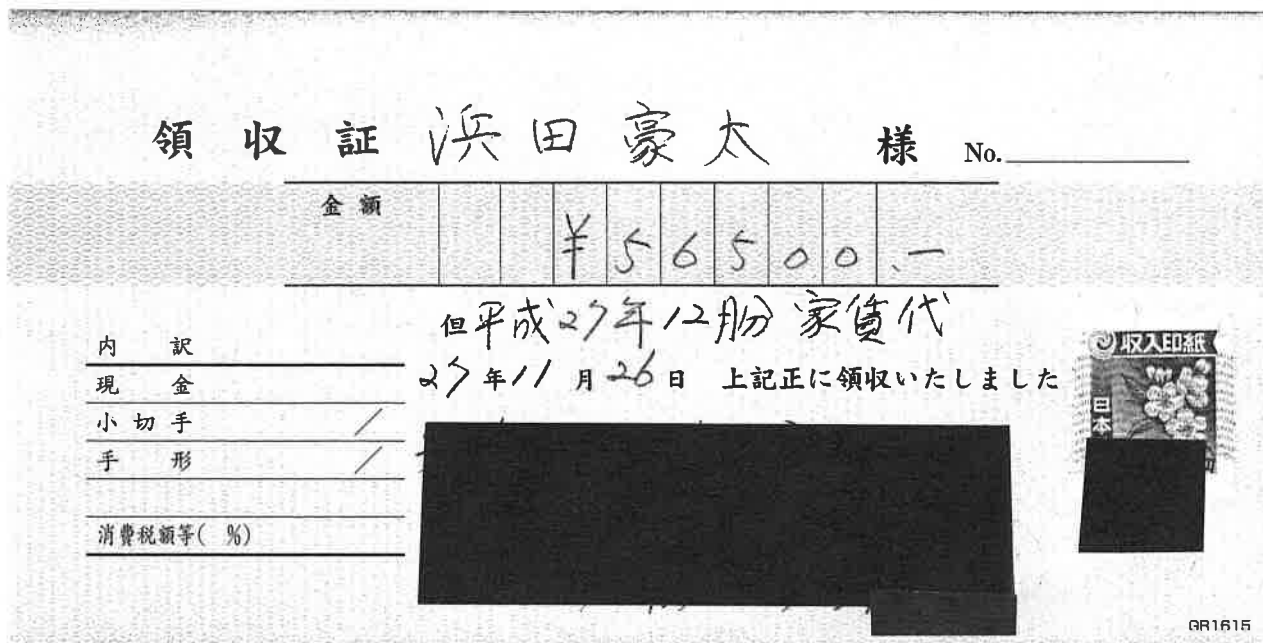 領収証 浜田豪太 様 No.
金額 ¥56500.-
但平成27年12月分 家賃代
27年11月26日 上記正に領収いたしました
内訳
現金
小切手 /
手形 /
消費税額等( %)
収入印紙
日本
GR1615